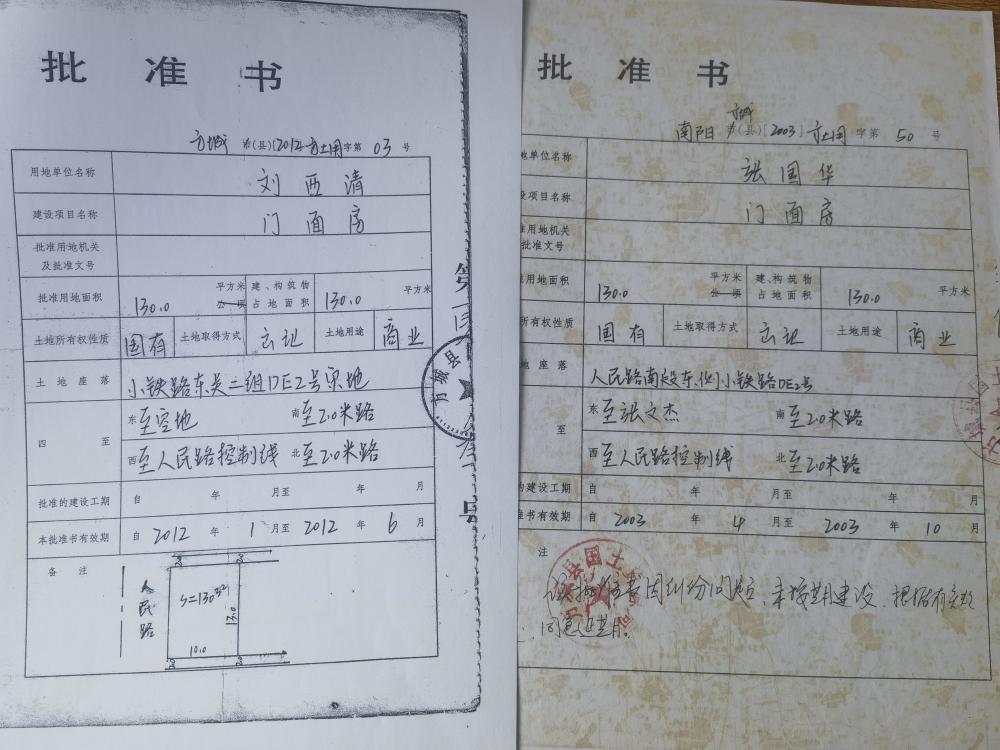 批 准 书
方城 市(县)[2012]方土用字第 03 号
用地单位名称 刘西清
建设项目名称 门面房
批准用地机关及批准文号
批准用地面积 130.0 平方米 公顷 建、构筑物占地面积 130.0 平方米
土地所有权性质 国有 土地取得方式 土地用途 商业
土地座落 小铁路东吴二组DE2号
四至 东 至空地 南 至2.0米路
西 至人民路控制线 北 至2.0米路
批准的建设工期 自 年 月至 年 月
本批准书有效期 自 2012 年 1 月至 2012 年 6 月
备注
人民路
S=130
13.0
10.0
第
方城县
号
批 准 书
南阳 方城 市(县)[2003]方土用字第 50 号
地单位名称 张国华
设项目名称 门面房
准用地机关
批准文号
准用地面积 130.0 平方米 公顷 建、构筑物占地面积 130.0 平方米
所有权性质 国有 土地取得方式 土地用途 商业
地座落 人民路南段东侧小铁路DE2号
至 东 至张文杰 南 至2.0米路
西 至人民路控制线 北 至2.0米路
的建设工期 自 年 月至 年 月
准书有效期 自 2003 年 4 月至 2003 年 10 月
注
县国土
因纠纷问题,未按期建设,根据有关
同意延期。